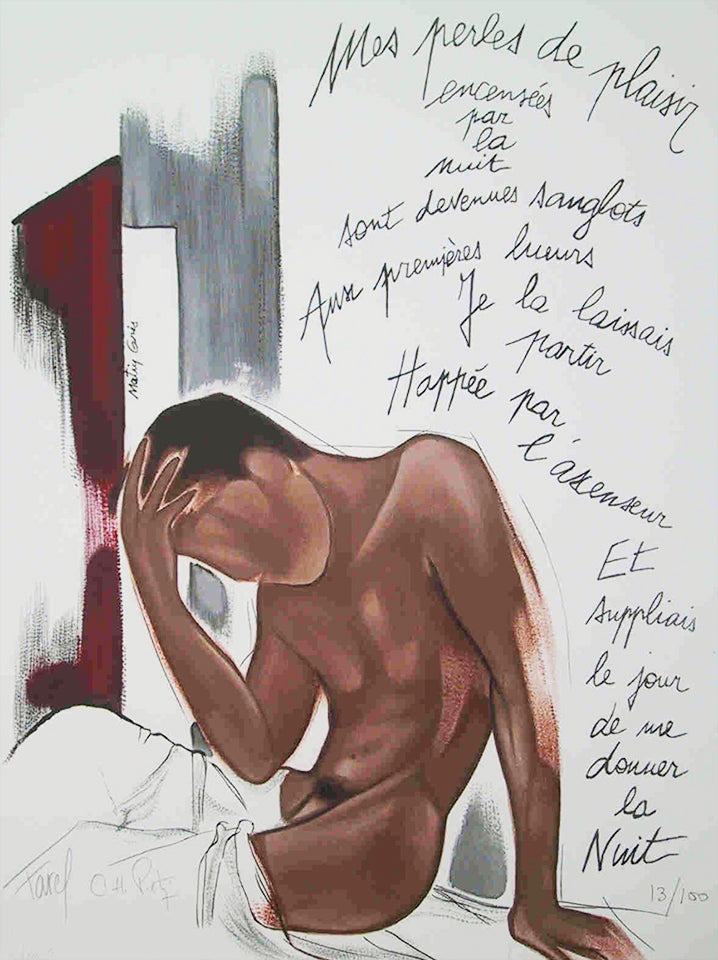 Mes perles de plaisir
encensées
par
la
nuit
sont devenues sanglots
Aux premières lueurs
Je la laissais
partir
Happée par
l'ascenseur
Et
suppliais
le jour
de me
donner
la
Nuit
13/100